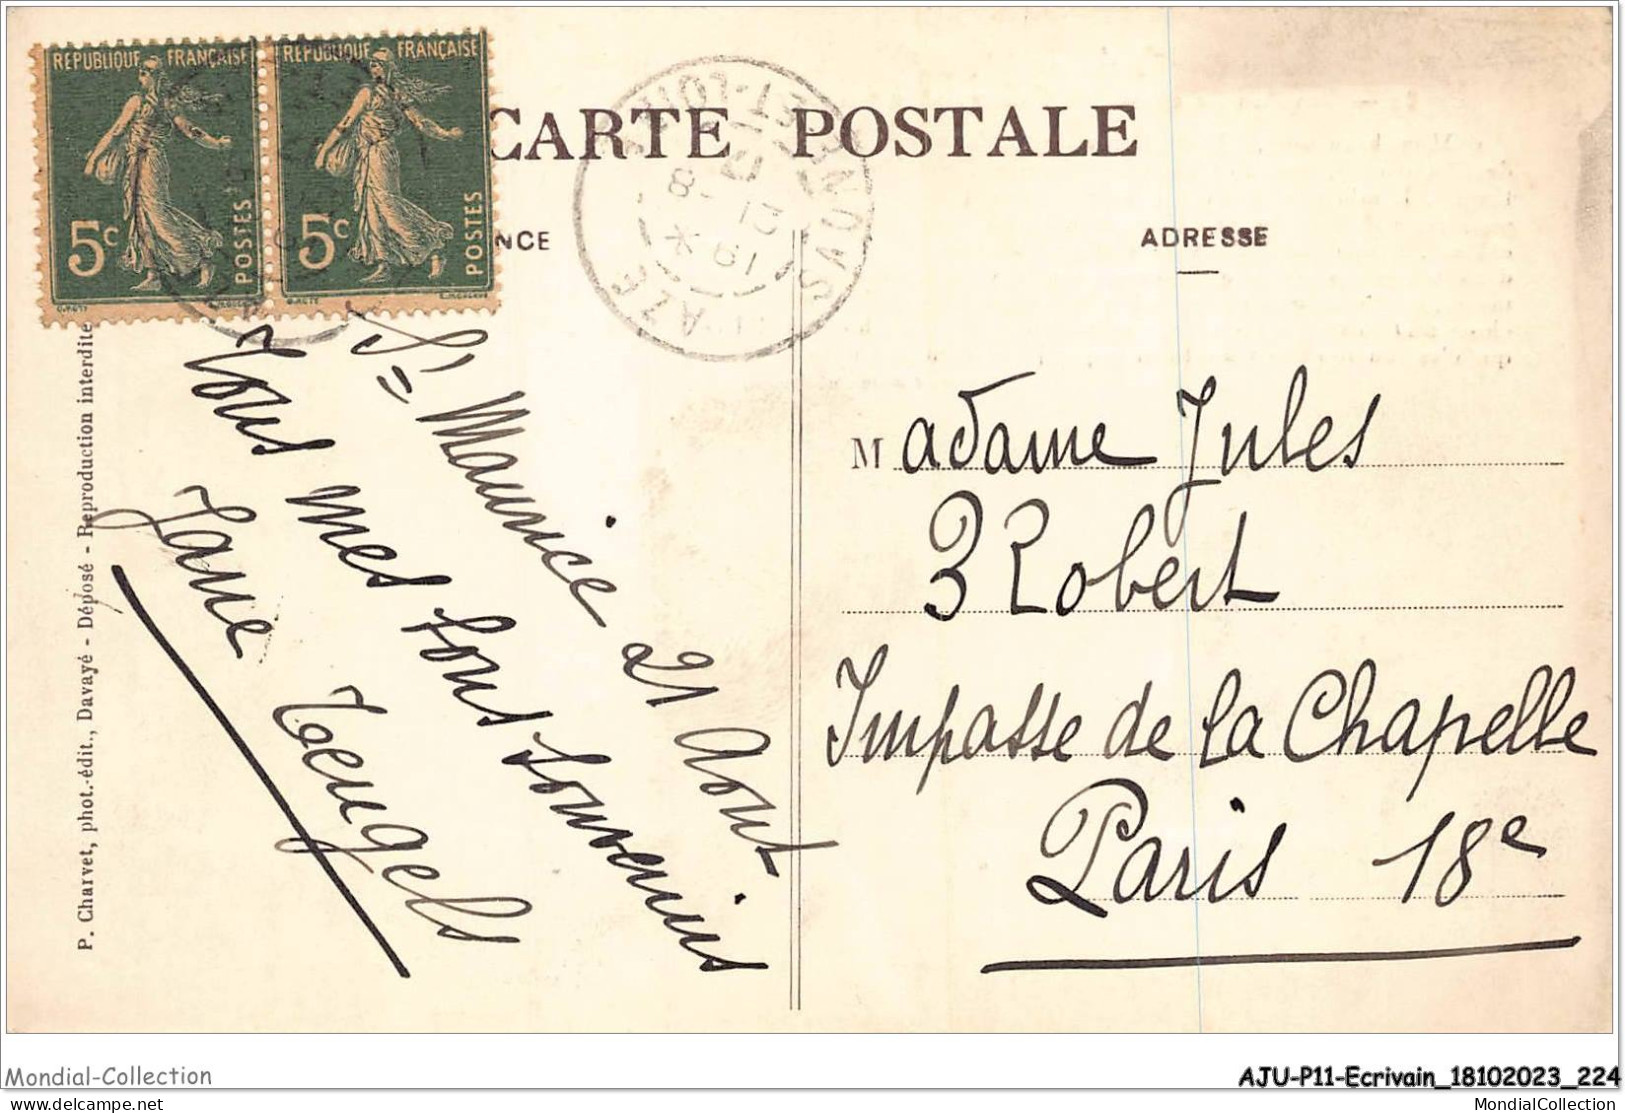 RÉPUBLIQUE FRANÇAISE
5c POSTES
RÉPUBLIQUE FRANÇAISE
5c POSTES
CARTE POSTALE
NCE
ADRESSE
AZE
SAONE-ET-LOIRE
St Maurice 21 Aout
Tous mes bons souvenirs
Jane Teugels
Madame Jules
3 Robert
Impasse de la Chapelle
Paris 18e
P. Charvet, phot.-édit., Davayé - Déposé - Reproduction interdite
Mondial-Collection
AJU-P11-Ecrivain_18102023_224
delcampe.net
MondialCollection